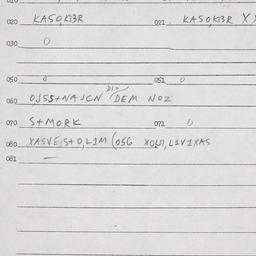 020 KASO,K13R 021. KASOK13R X
030 0
050 0 051 0
060 OJSS+NAJCN DEM NOZ
070 S+MORK 071 0
080 XASVE,S+O,L1M (056 XOU1,L1V1XAS
081 —